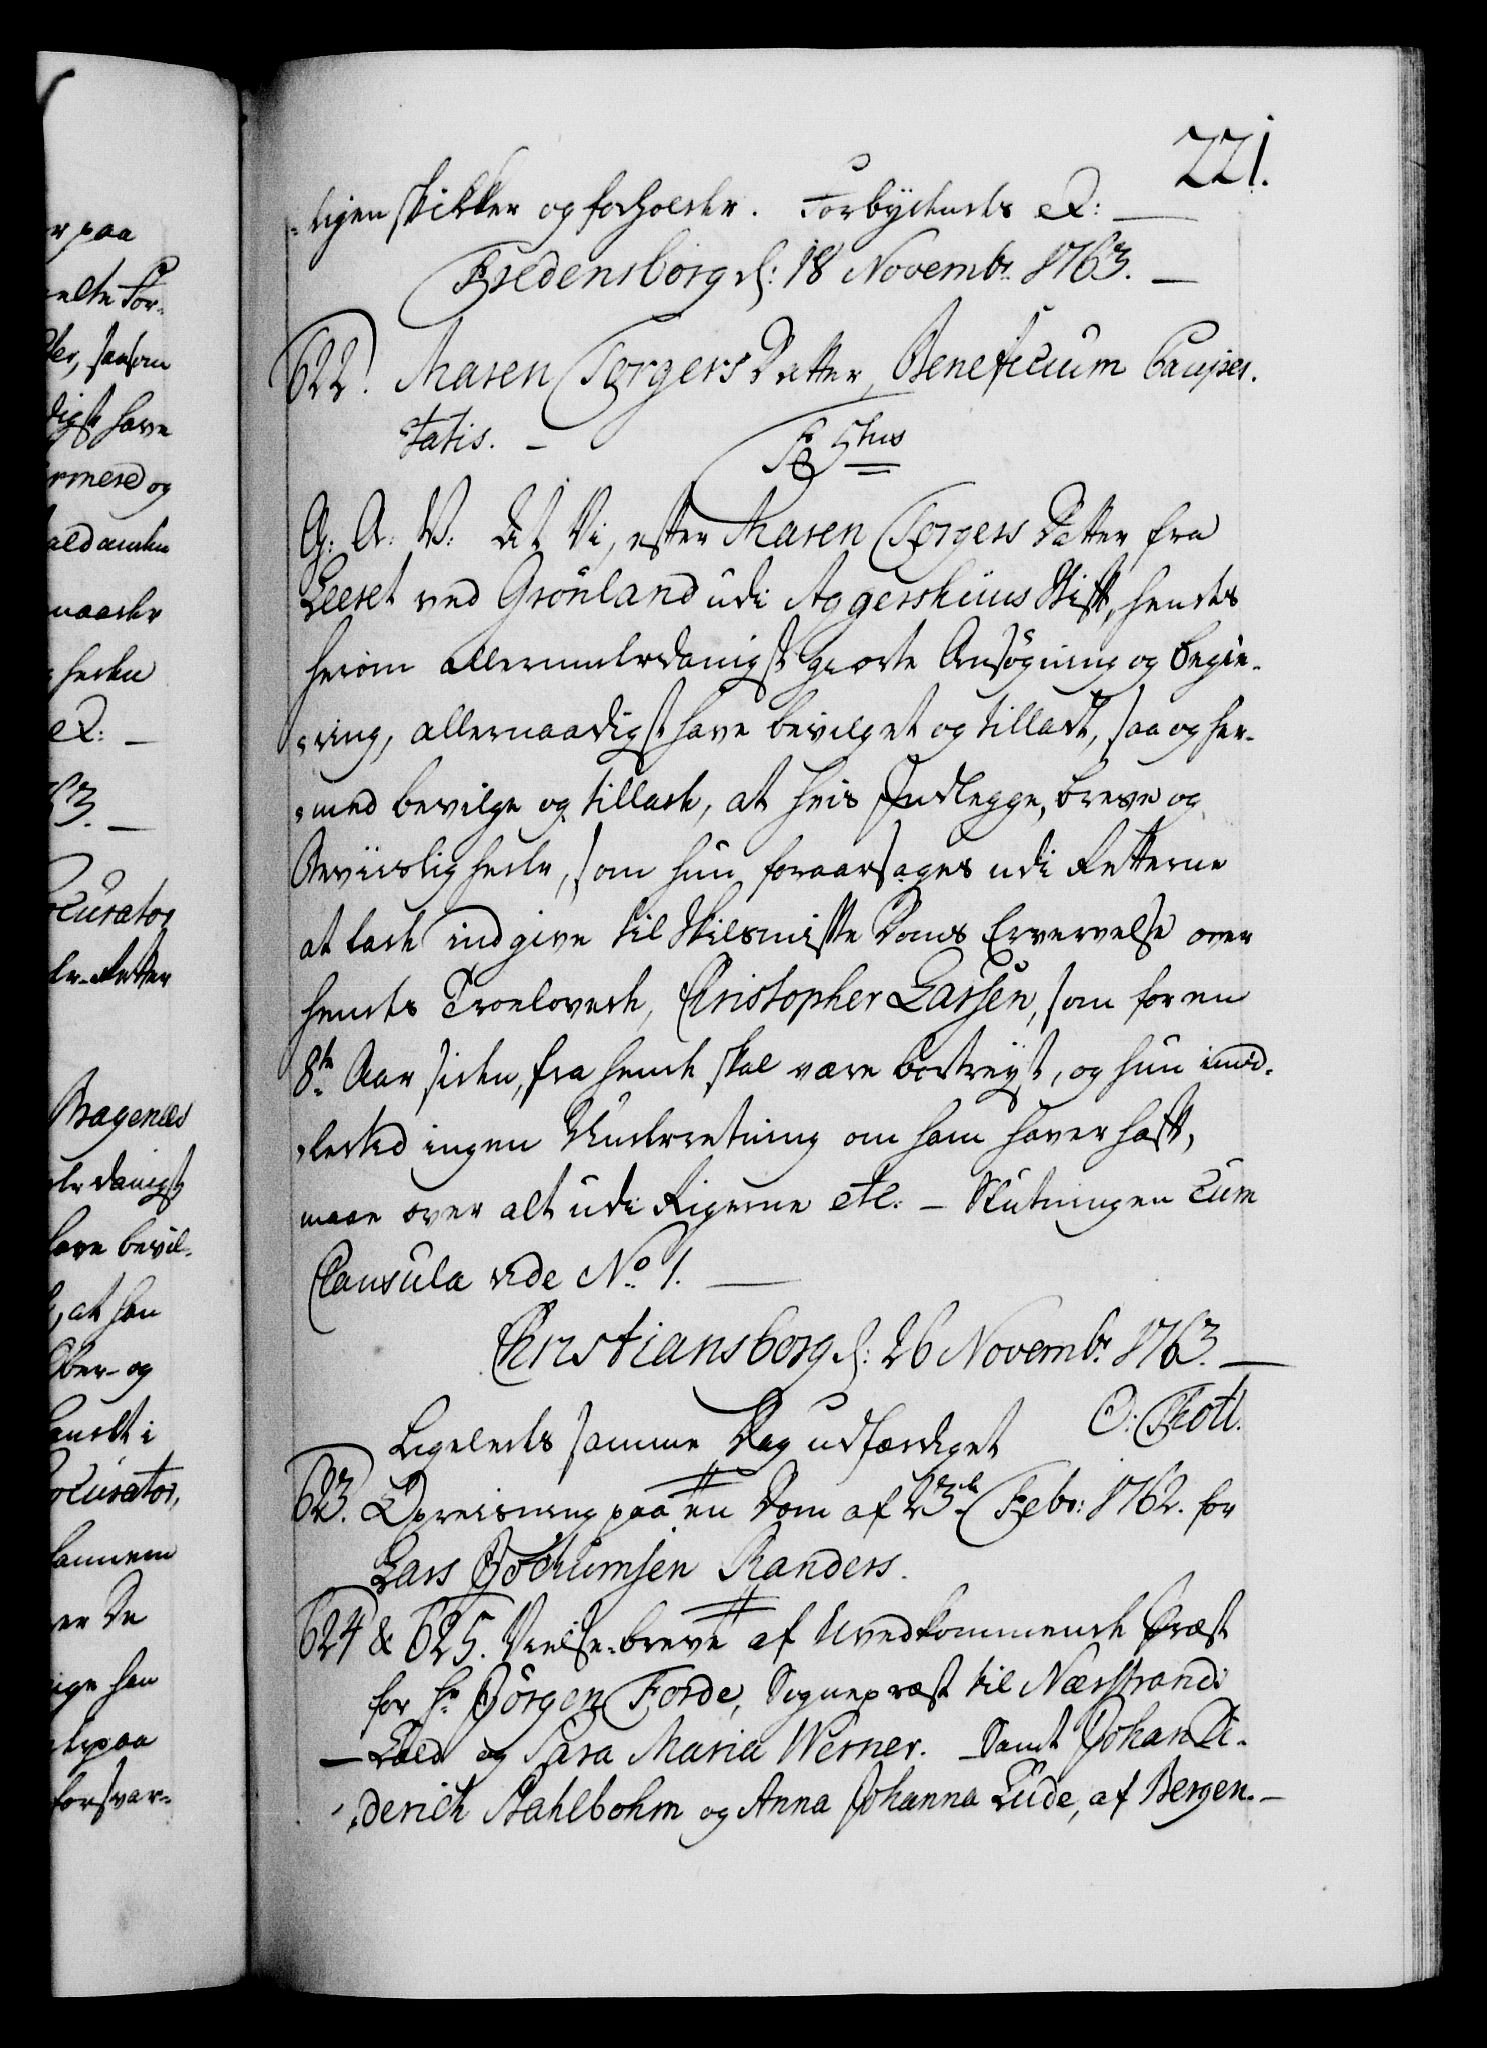 221.
-ligen skikker og forholder. Forbydendes &:
Fredensborg d: 18 Novembr. 1763.
622. Maren Torgers Datter, Beneficium Pauper-
tatis. - F 5tus
G: A: V: At Vi, efter Maren Torgers Datter fra
Leeret ved Grönland udi Aggershuus Stift, hendes
herom allerunderdanigst giorte Ansögning og Begie-
-ring, allernaadigst have bevilget og tilladt, saa og her-
-med bevilge og tillade, at hvis Indlegge, breve og
Beviisligheder, som hun foraarsages udi Retterne
at lade indgive til Skilsmisse Doms Erhvervelse over
hendes Troelovede, Christopher Larsen, som for en
8te Aar siden, fra hende skal være bortreyst, og hun imid-
-lertid ingen Underretning om ham haver haft,
maae over alt udi Rigerne etc: - Slutningen cum
Clausula vide No. 1.
Christiansborg d: 26 Novembr. 1763.
O: Thott.
Ligeledes samme Dag udfærdiget
623. Opreisning paa en Dom af 23de Febr: 1762. for
Lars Jochumsen Randers.
624 & 625. Vielse-breve af Uvedkommende Præst
for Hr. Jörgen Forde, Sognepræst til Nærstrands
Gield og Sara Maria Werner. Samt Johan Di-
-derich Stahlbohm og Anna Johanna Lude, af Bergen.-
r paa
elte For-
ler, saasom
digst have
ærmere og
naadr
heden
&: -
63. -
ocurator
Bragenæs
rdanigst
have bevil-
, at han
Ober- og
andt i
ocurator,
er De
ige han
paa
forsvar-